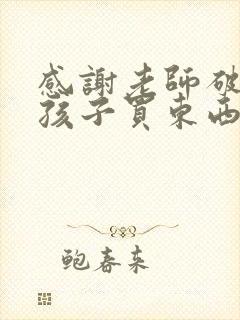 感謝老師破
孩子買東西
鮑春來